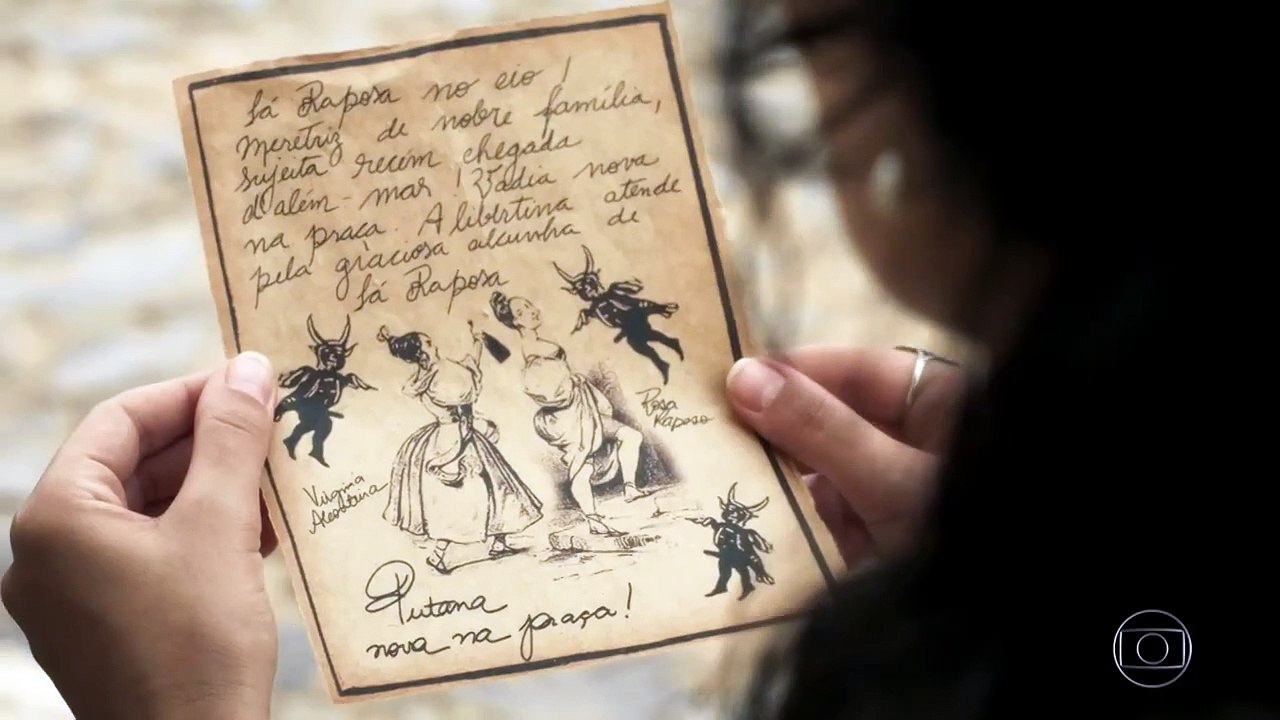 Sá Raposa no cio!
Meretriz de nobre família,
sujeita recém chegada
d'além-mar! Vadia nova
na praça. A libertina atende
pela graciosa alcunha de
Sá Raposa
Rosa
Raposo
Virgina
Putana
nova na praça!